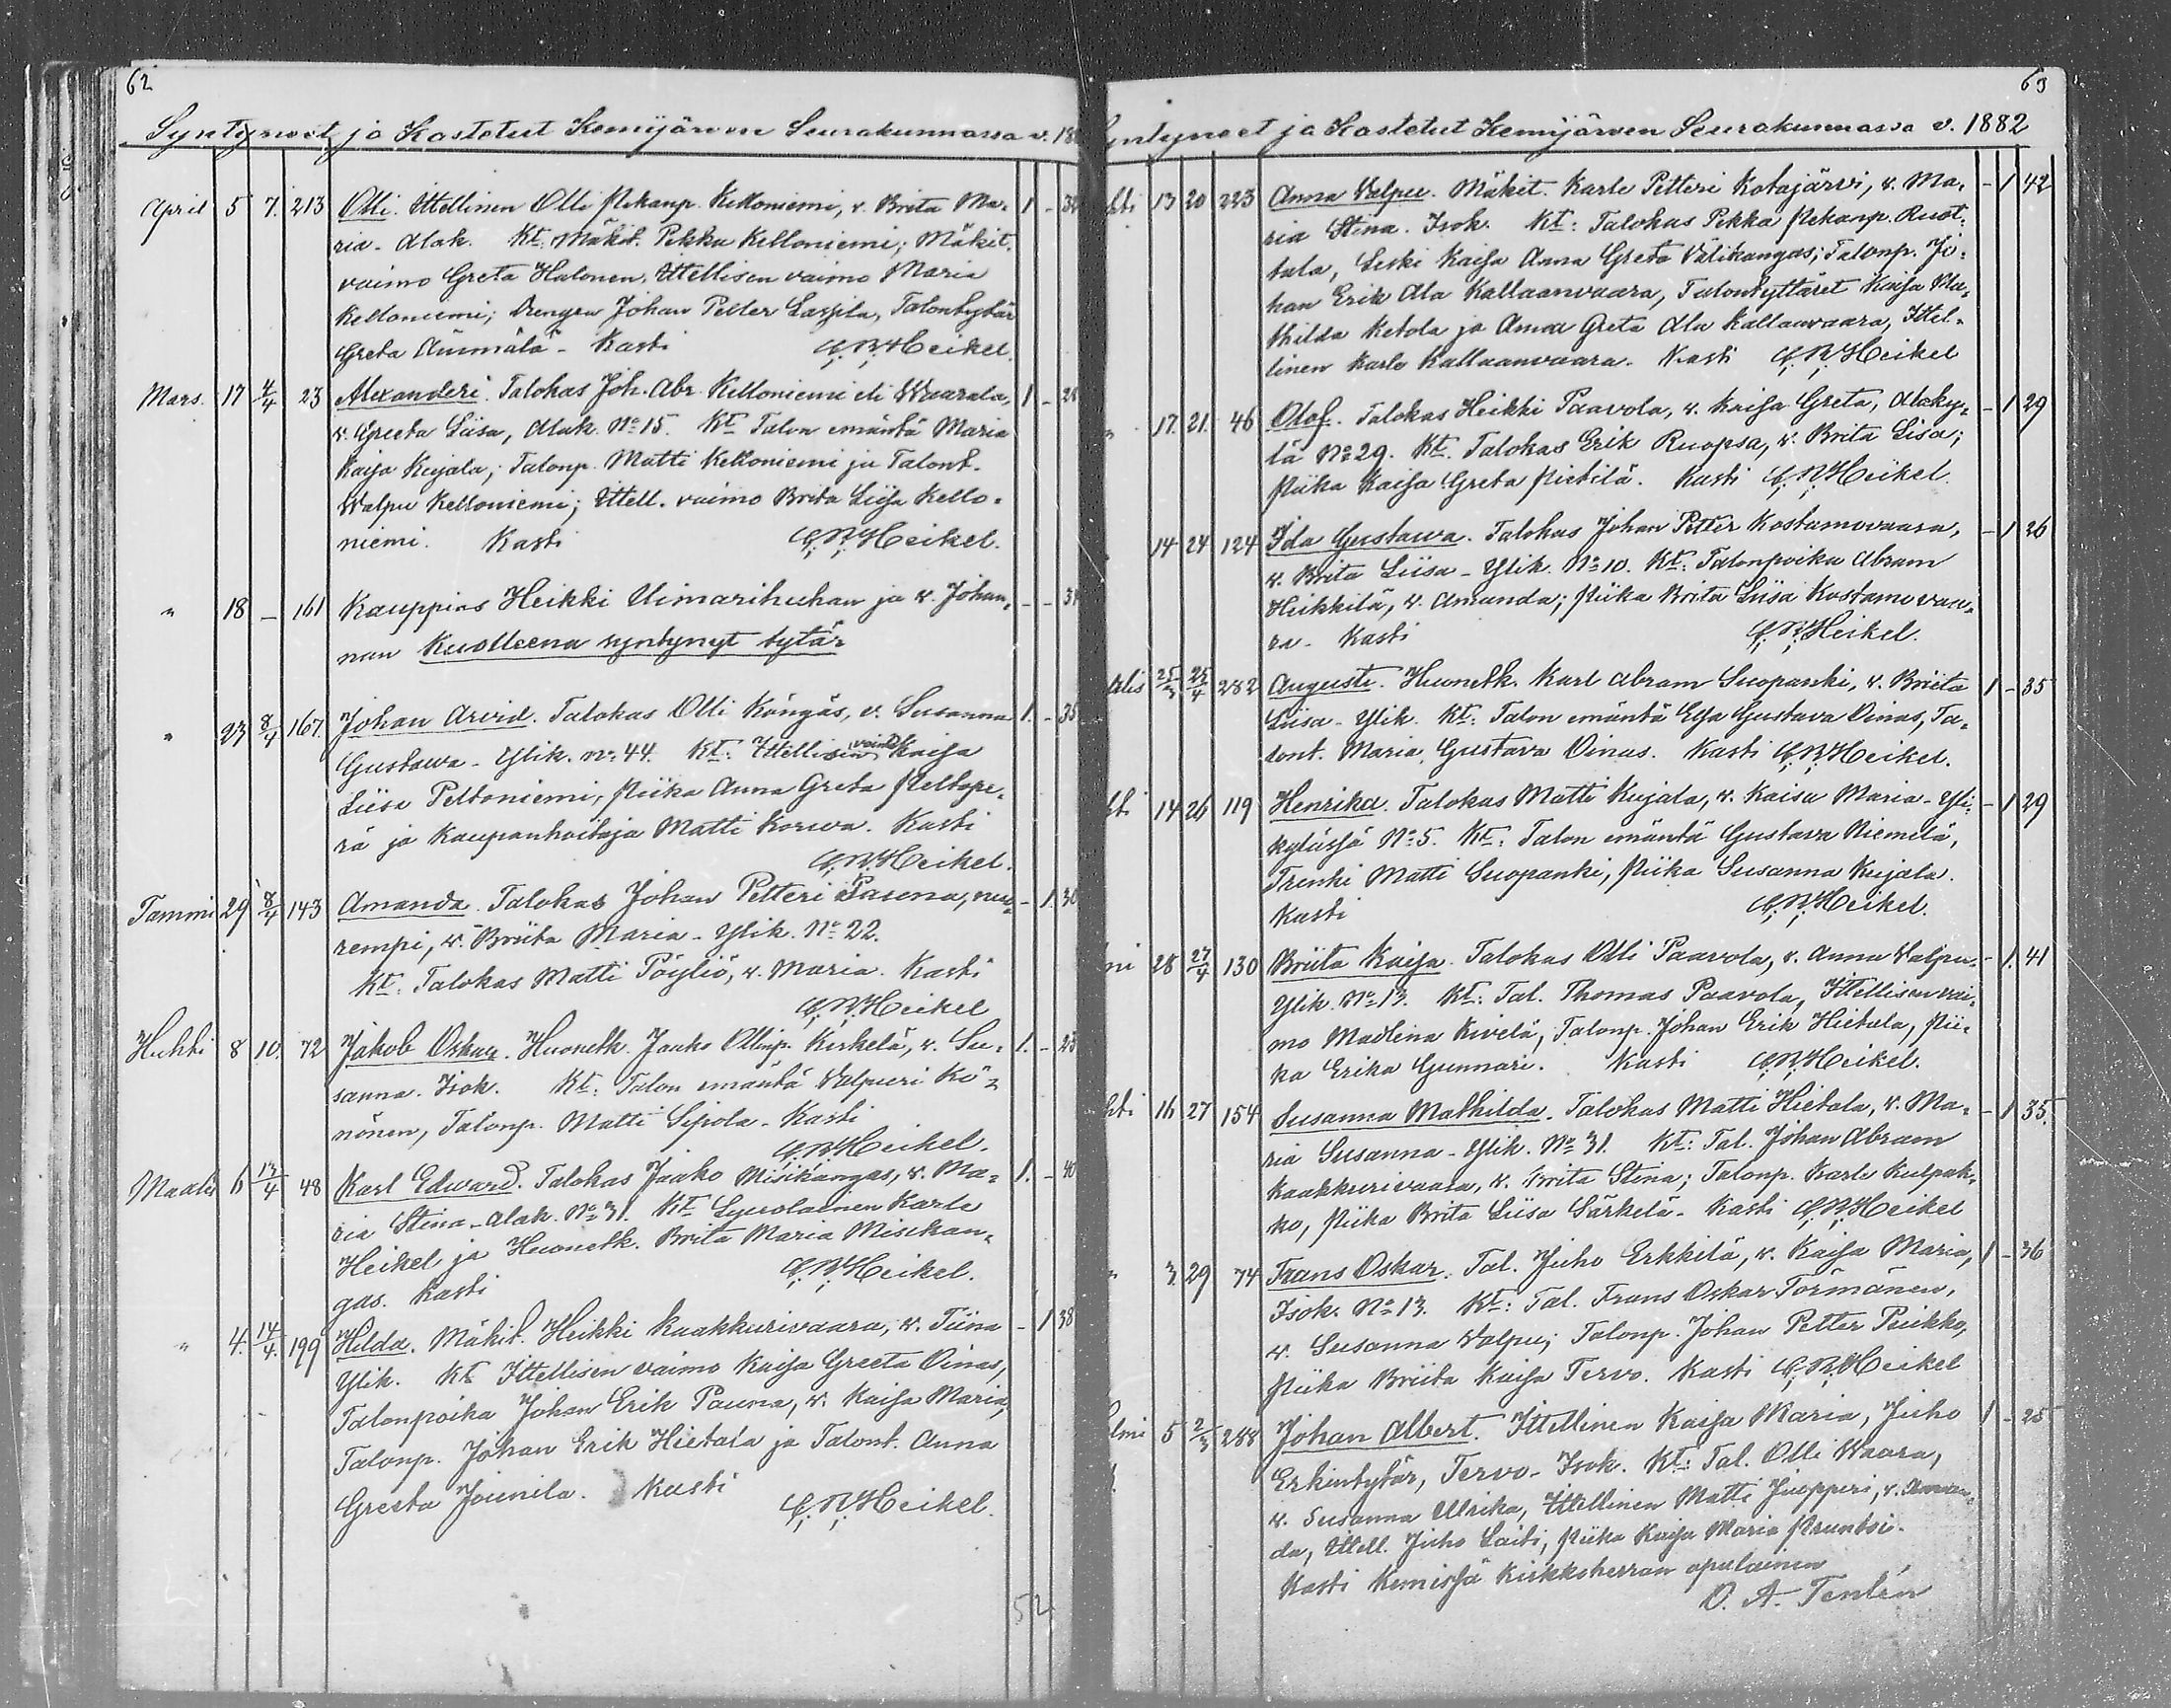 62
Syntyneet ja Kastetut Kemijärven Seurakunnassa v. 188
April 5 7. 213 Olli. Ittellinen Olli Pekanp. Kelloniemi, v. Brita Ma- 1 -
ria. Alak. Kt: Mäkit. Pekka Kelloniemi; Mäkit.
vaimo Greta Halonen, Ittellisen vaimo Maria
Kelloniemi; Drengen Johan Petter Lassila, Talontytär
Greta Ämmälä - Kasti C. R. Heikel.
Mars. 17 4/4 23 Alexanderi. Talokas Joh. Abr. Kelloniemi eli Waarala, 1 - 28
v. Greeta Liisa, Alak. No 15. Kt Talon emäntä Maria
Kaija Kujala; Talonp. Matti Kelloniemi ja Talont.
Walpu Kelloniemi; Ittell. vaimo Brita Liisa Kello-
niemi. Kasti C. R. Heikel.
" 18 - 161 Kauppias Heikki Uimarihuhan ja v. Johan- - -
nan Kuolleena syntynyt tytär
" 23 8/4 167. Johan Arvid. Talokas Olli Kangas, v. Susanna 1. - 35
Gustawa - Ylik. no 44. Kt: Ittellisen vaimo Kaisa
Liisa Peltoniemi, Piika Anna Greta Peltope-
rä ja Kaupanhoitaja Matti Korwa. Kasti
C. R. Heikel.
Tammi 29 8/4 143 Amanda. Talokas Johan Petteri Pauna, nuo- - 1. 30
rempi, v. Briita Maria - Ylik. No 22.
Kt: Talokas Matti Pöyliö, v. Maria. Kasti
C. R. Heikel
Huhti 8 10. 72 Jakob Oskar. Huonetk. Janko Ollinp. Kerkelä, v. Su- 1. - 25
sanna. Isok. Kt: Talon emäntä Walpuri Kö-
nönen, Talonp. Matti Sipola - Kasti
C. R. Heikel.
Maalis 6 13/4 48 Karl Edward. Talokas Jaako Misikangas, v. Ma- 1. - 40
ria Stina - Alak. No 31. Kt Lyseolainen Karle
Heikel ja Huonetk. Brita Maria Misikan-
gas. Kasti C. R. Heikel.
" 4. 14/4. 199 Hilda. Mäkit. Heikki Kaakkurivaara, v. Tiina - 1 38
Ylik. Kt Ittellisen vaimo Kaisa Greeta Oinas,
Talonpoika Johan Erik Pauna, v. Kaisa Maria,
Talonp. Johan Erik Hietala ja Talont. Anna
Greeta Jounila. Kasti C. R. Heikel.
52
63
Syntyneet ja Kastetut Kemijärven Seurakunnassa v. 1882
hti 13 20 223 Anna Walpu. Mäkit. Karle Petteri Kotajärvi, v. Ma- - 1 42
ria Stina. Isok. Kt: Talokas Pekka Pekanp. Ruot-
tala, Leski Kaisa Anna Greta Välikangas; Talonp. Jo-
han Erik Ala Kallaanvaara, Talontyttäret Kaisa Ma-
thilda Ketola ja Anna Greta Ala Kallaanvaara, Ittel-
linen Karle Kallaanvaara. Kasti C. R. Heikel
" 17. 21. 46 Olof. Talokas Heikki Paavola, v. Kaisa Greta, Alaky- - 1 29
lä No 29. Kt. Talokas Erik Ruopsa, v. Brita Lisa;
Piika Kaisa Greta Pietilä. Kasti C. R. Heikel.
14 24 124 Ida Gustawa. Talokas Johan Petter Kostamovaara, - 1 26
v. Brita Liisa - Ylik. No 10. Kt: Talonpoika Abram
Heikkilä, v. Amanda; Piika Brita Liisa Kostamovaa-
ra - Kasti C. R. Heikel.
alis 25/3 25/4 282 Augusti. Huonetk. Karl Abram Suopanki, v. Briita 1 - 35
Liisa - Ylik. Kt: Talon emäntä Elsa Gustava Oinas, Ta-
lont. Maria Gustava Oinas. Kasti C. R. Heikel.
hti 14 26 119 Henrika. Talokas Matti Kujala, v. Kaisa Maria - Yli- - 1 29
kylässä No 5. Kt: Talon emäntä Gustava Niemelä,
Trenki Matti Suopanki, Piika Susanna Kujala.
Kasti C. R. Heikel.
mi 28 27/4 130 Briita Kaisa. Talokas Olli Paavola, v. Anna Walpu- - 1. 41
Ylik. No 13. Kt: Tal. Thomas Paavola, Ittellisen vai-
mo Madlena Kivelä, Talonp. Johan Erik Hietala, Pii-
ka Erika Gunnari. Kasti C. R. Heikel.
hti 16 27 154 Susanna Mathilda. Talokas Matti Hietala, v. Ma- - 1 35.
ria Susanna - Ylik. No 31. Kt: Tal. Johan Abram
Kaakkurivaara, v. Brita Stina; Talonp. Karle Kulpak-
ko, Piika Brita Liisa Särkelä - Kasti C. R. Heikel
" 3. 29 74 Frans Oskar. Tal. Juho Erkkilä, v. Kaisa Maria, 1 - 36
Isok. No 13. Kt: Tal. Frans Oskar Törmänen,
v. Susanna Walpu; Talonp. Johan Petter Puikko,
Piika Briita Kaisa Tervo. Kasti C. R. Heikel
lmi 5 2/3 288 Johan Albert. Ittellinen Kaisa Maria, Juho 1 - 25
Erkintytär, Tervo - Isok. Kt: Tal. Olli Waara,
v. Susanna Ulrika, Ittellinen Matti Juopperi, v. Aman-
da, Ittell. Juho Laiti, Piika Kaisa Maria Pruntsi.
Kasti Kemissä Kirkkoherran apulainen
O. A. Tenlén